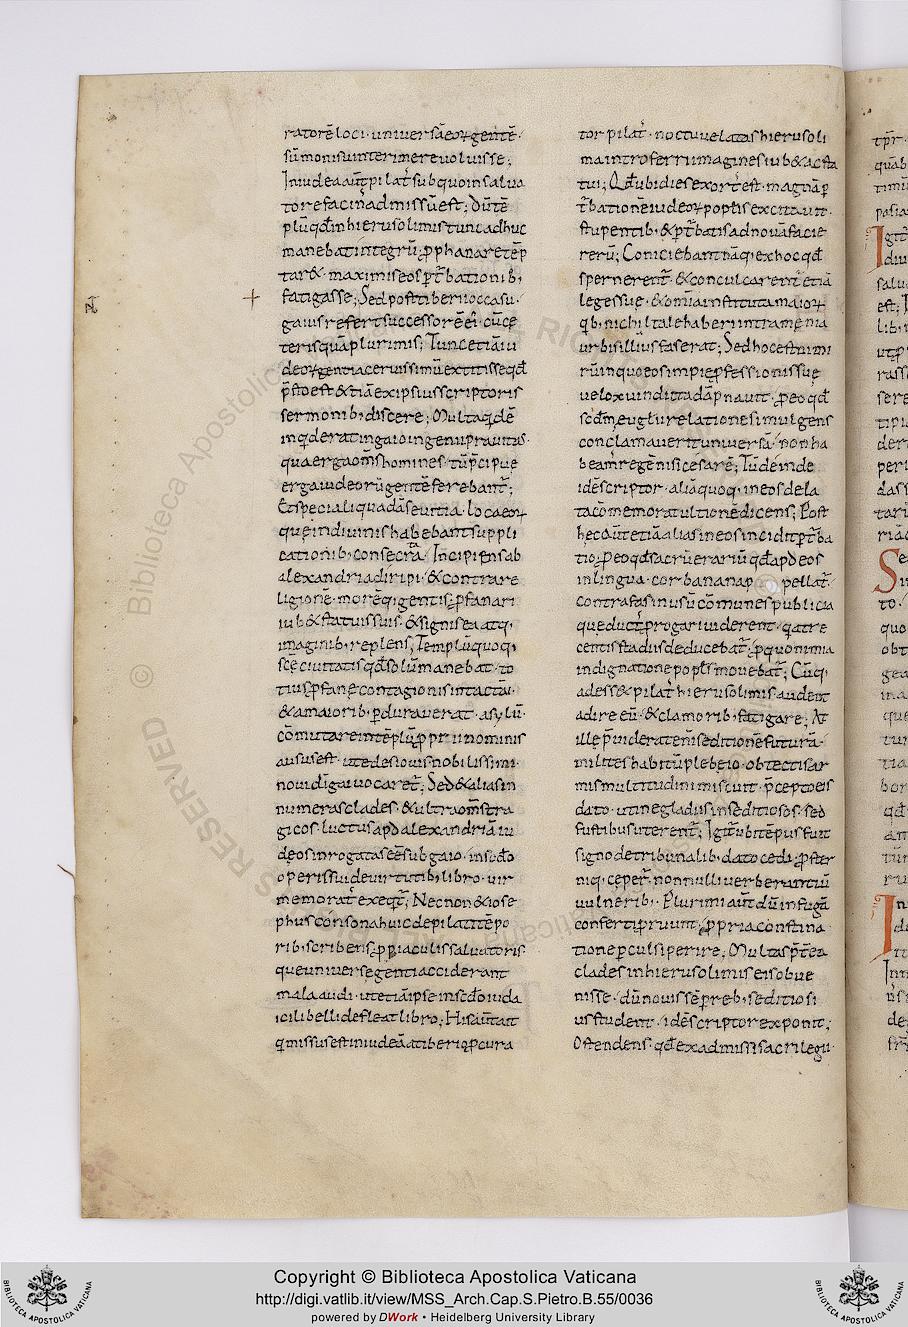 ratorē loci · universā eoꝝ gentē ·
sūmo nisu interimere voluisse ;
In iudea aut̄ pilat̄ sub quo in salva
tore facin admissū est ; dū tē
plū qd̄ in hierusolimis tunc adhuc
manebat integrū · ꝓphanare tēp
tar& · maximis eos ꝑt̄bationib;
fatigasse ; Sed post tiberii occasū ·
gaius refert successorē ei · cū cę
teris quā plurimis ; Tunc etiā iu
deoꝝ genti acervissimū extitisse qd̄
p̄sto est & tiā ex ipsius scriptoris
sermonib; discere ; Multa qdē
inqd erat in gaio ingenii pravitas ·
qua erga om̄s homines · tū p̄cipue
erga iudeorū gentē ferebant̄ ;
Et speciali quadā sevitia · loca eoꝝ
que in divinis habebant suppli
cationib; consecra · Incipiens ab
alexandria diripi · & contra re
ligionē · morēq; gentis · ꝓfanari
iub& statuis suis · & signis ea atq;
imaginib; replens ; Templū quoq;
scę civitatis qd̄ solū manebat · to
tius ꝓfane contagionis intactū ·
& a maiorib; ꝑduraverat · asylū ·
cōmutare in tēplū ꝓprii nominis
ausus est · ut edes iovis nobilissimi ·
novi dīgai vocaret̄ ; Sed & alias in
numeras clades · & ultra om̄s tra
gicos · luctus apd alexandriā iu
deos inrogatas eē sub gaio · in scd̄o
operis sui de virtutib; libro · vir
memorat̄ exeqt̄ ; Necnon & iose
phus consona huic de pilati tēpo
rib; scribens · ꝓ piaculis salvatoris ·
que universe genti acciderant
mala audi · ut etiā ipse in scd̄o iuda
ici libelli defleat libro ; His aūt ait
q missus est in iudeā a tiberio ꝓcura
tor pilat̄ · noctu velatas hierusoli
ma intro ferri imagines iub& a cęsa
tui ; Qd̄ ubi dies exort̄ est · magnā ꝑ
t̄bationē iudeoꝝ poplis excitavit ·
stupentib; & ꝑt̄batis ad novā facię
rerū ; Coniciebant nāq; ex hoc qd̄
spernerent̄ & conculcarent̄ etiā
leges suę · & om̄ia instituta maioꝝ
qb; nichil tale haberi intra męnia
urbis illius fas erat ; Sed hoc est nimi
rū in quo eos impię ꝓfessionis suę
velox vindicta dāpnavit · ꝓ eo qd̄
scd̄m euglii relatione simul gens
conclamaverit universa · non ha
beam̄ regē nisi cesarē ; Iū deinde
idē scriptor · aliā quoq; in eos de la
ta cōmemorat ultionē dicens ; Post
hec aūt etiā alias in eos incidit ꝑt̄ba
tio · ꝓ eo qd̄ sacrū erariū qd̄ apd eos
in lingua · corbanan ap pellat̄ ·
contra fas in usū cōmunes publicia
que duct̄ · progari viderent · qa tre
centis stadiis deducebat̄ ; ꝓ quo nimia
indignatione popl̄s movebat̄ ; Cūq;
adess& pilat̄ hierusolimis audent
adire eū · & clamorib; fatigare ; At
ille p̄viderat eni seditionē futurā ·
milites habitū plebeio · obtectis ar
mis multitudini miscuit · p̄cepto eis
dato · uti ne gladiis in seditiosos · sed
fustibus uterent̄ ; Igit̄ ubi tēpus fuit
signo de tribunalib; dato cedi · ꝓster
niq; cępet̄ · nonnulli verberantiū
vulnerib; · Plurimi aūt dū in fugā
conserti · pruunt · ꝓpria constina
tione ꝑculsi perire ; Multas p̄t ea
clades in hierusolimis eis obve
nisse · dū novis sēp̄ reb; seditiosi
us student · idē scriptor exponit ;
Ostendens · qd̄ ex admissi sacrilegii
Copyright © Biblioteca Apostolica Vaticana
http://digi.vatlib.it/view/MSS_Arch.Cap.S.Pietro.B.55/0036
powered by DWork • Heidelberg University Library
BIBLIOTECA APOSTOLICA VATICANA
BIBLIOTECA APOSTOLICA VATICANA